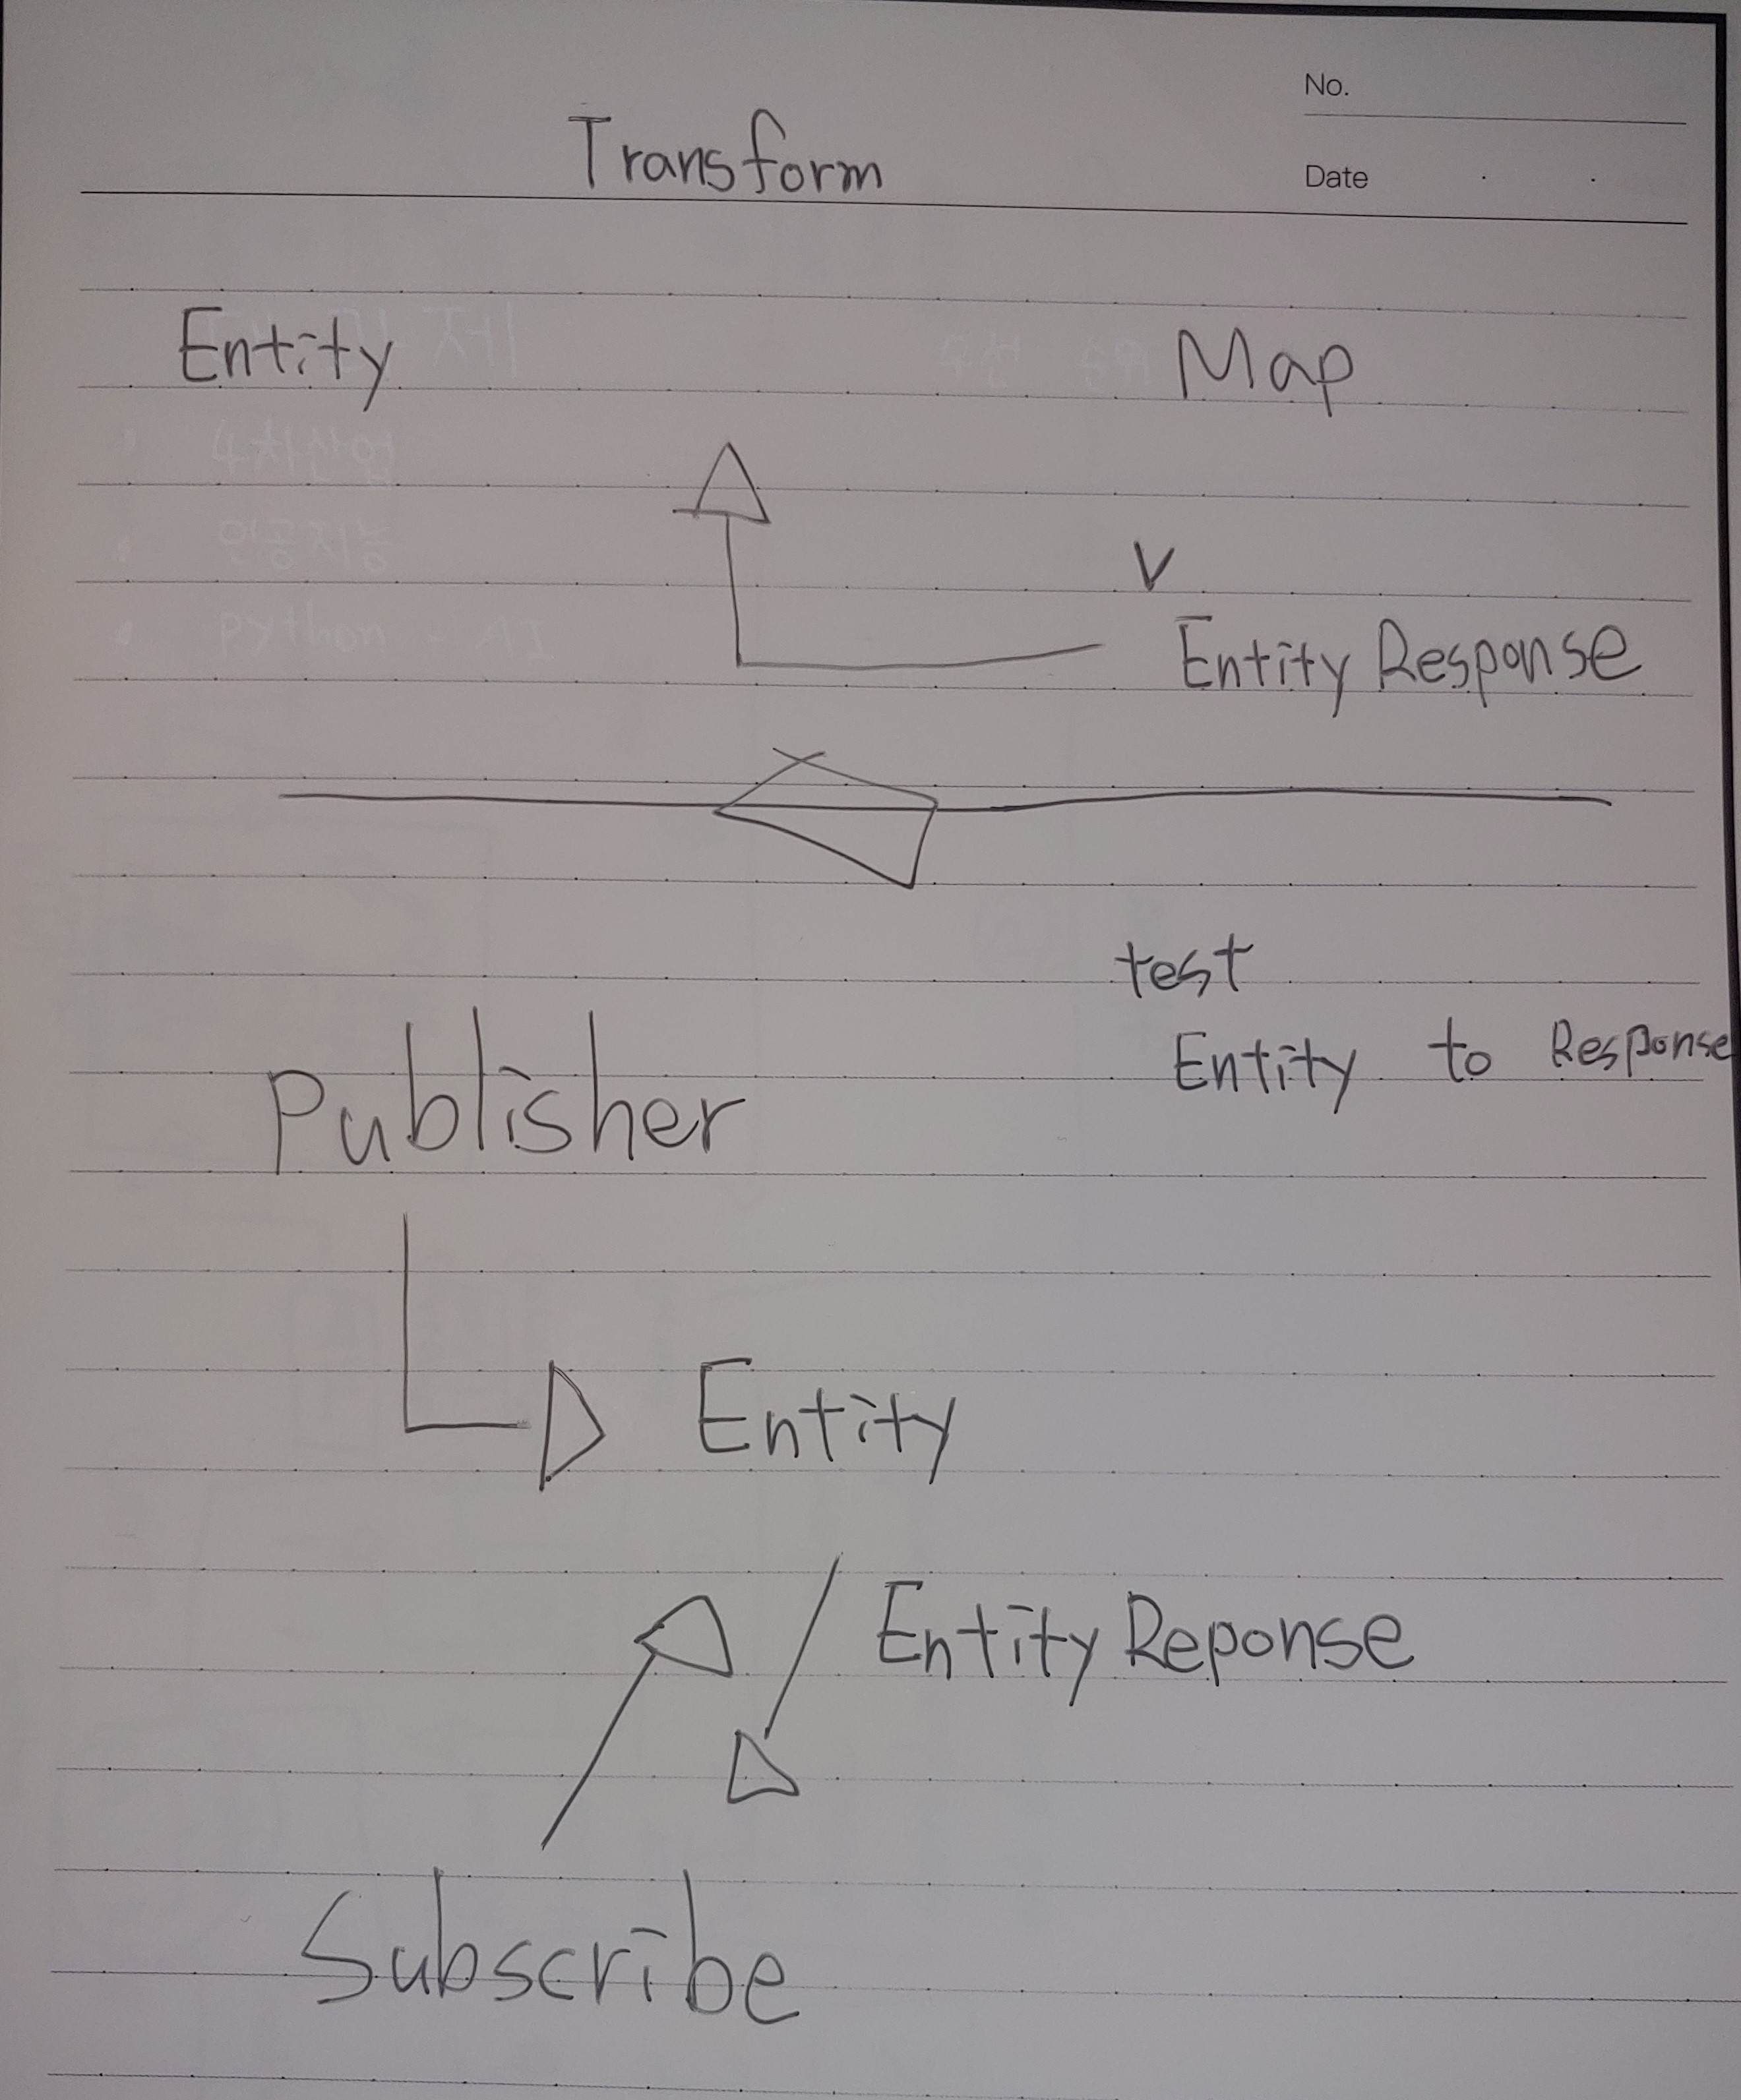 No.
Transform
Date . .
Entity Map
V
Entity Response
test
Entity to Response
Publisher
Entity
Entity Reponse
Subscribe